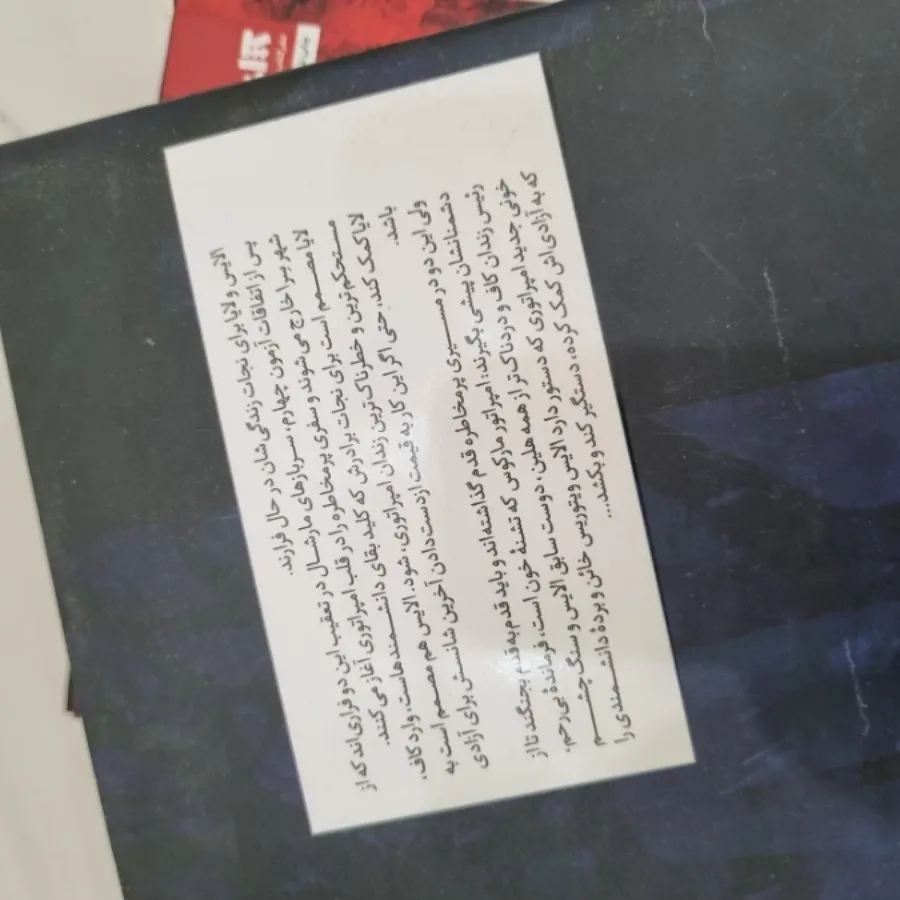 الایس و لایا برای نجات زندگی‌شان در حال فرارند.
پس از اتفاقات آزمون چهارم، سربازهای مارشال در تعقیب این دو فراری‌اند که از
شهر سرا خارج می‌شوند و سفری پرمخاطره را در قلب امپراتوری آغاز می‌کنند.
لایا مصمم است برای نجات برادرش که کلید بقای دانشمندهاست، وارد کاف،
مستحکم‌ترین و خطرناک‌ترین زندان امپراتوری، شود. الایس هم مصمم است به
لایا کمک کند، حتی اگر این کار به قیمت ازدست‌دادن آخرین شانسش برای آزادی
باشد.
ولی این دو در مسیری پرمخاطره قدم گذاشته‌اند و باید قدم به قدم بجنگند تا از
دشمنانشان پیشی بگیرند: امپراتور مارکوس که تشنهٔ خون است، فرماندهٔ بی‌رحم،
رئیس زندان کاف و دردناک‌تر از همه هلین، دوست سابق الایس و سنگ چشم
خونی جدید امپراتوری که دستور دارد الایس ویتوریس خائن و بردهٔ دانشمندی را
که به آزادی‌اش کمک کرده، دستگیر کند و بکشد...